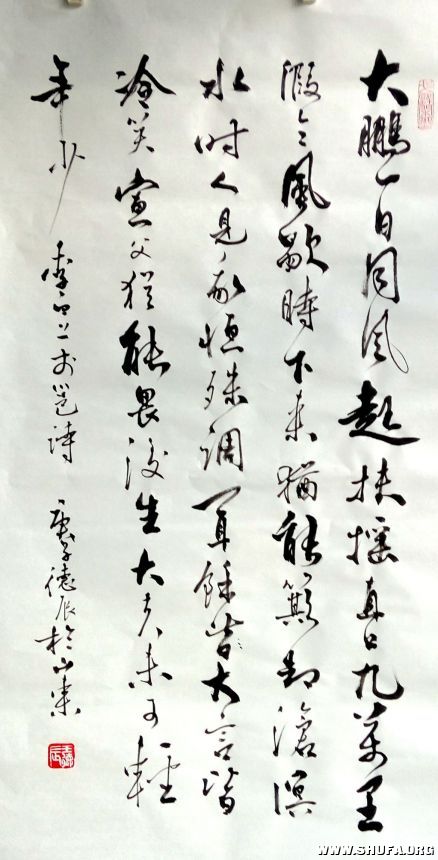 大鵬一日同风起扶摇直上九萬里
假令風歇時下来猶能簸却滄溟
水时人見我恒殊调闻餘皆大言皆
冷笑宣父猶能畏後生丈夫未可輕
年少 李白上李邕詩 庚子德辰於山東
WWW.SHUFA.ORG